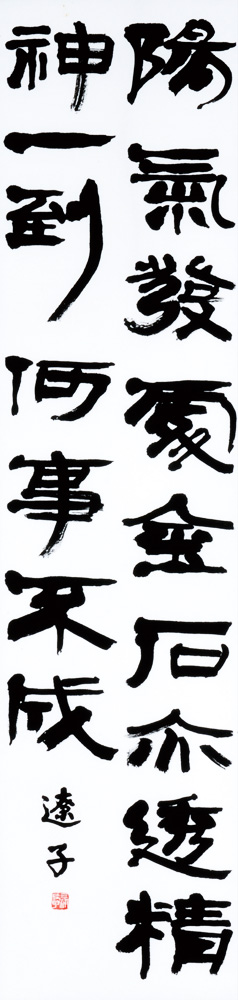 陽氣發處金石亦透精
神一到何事不成
遼子